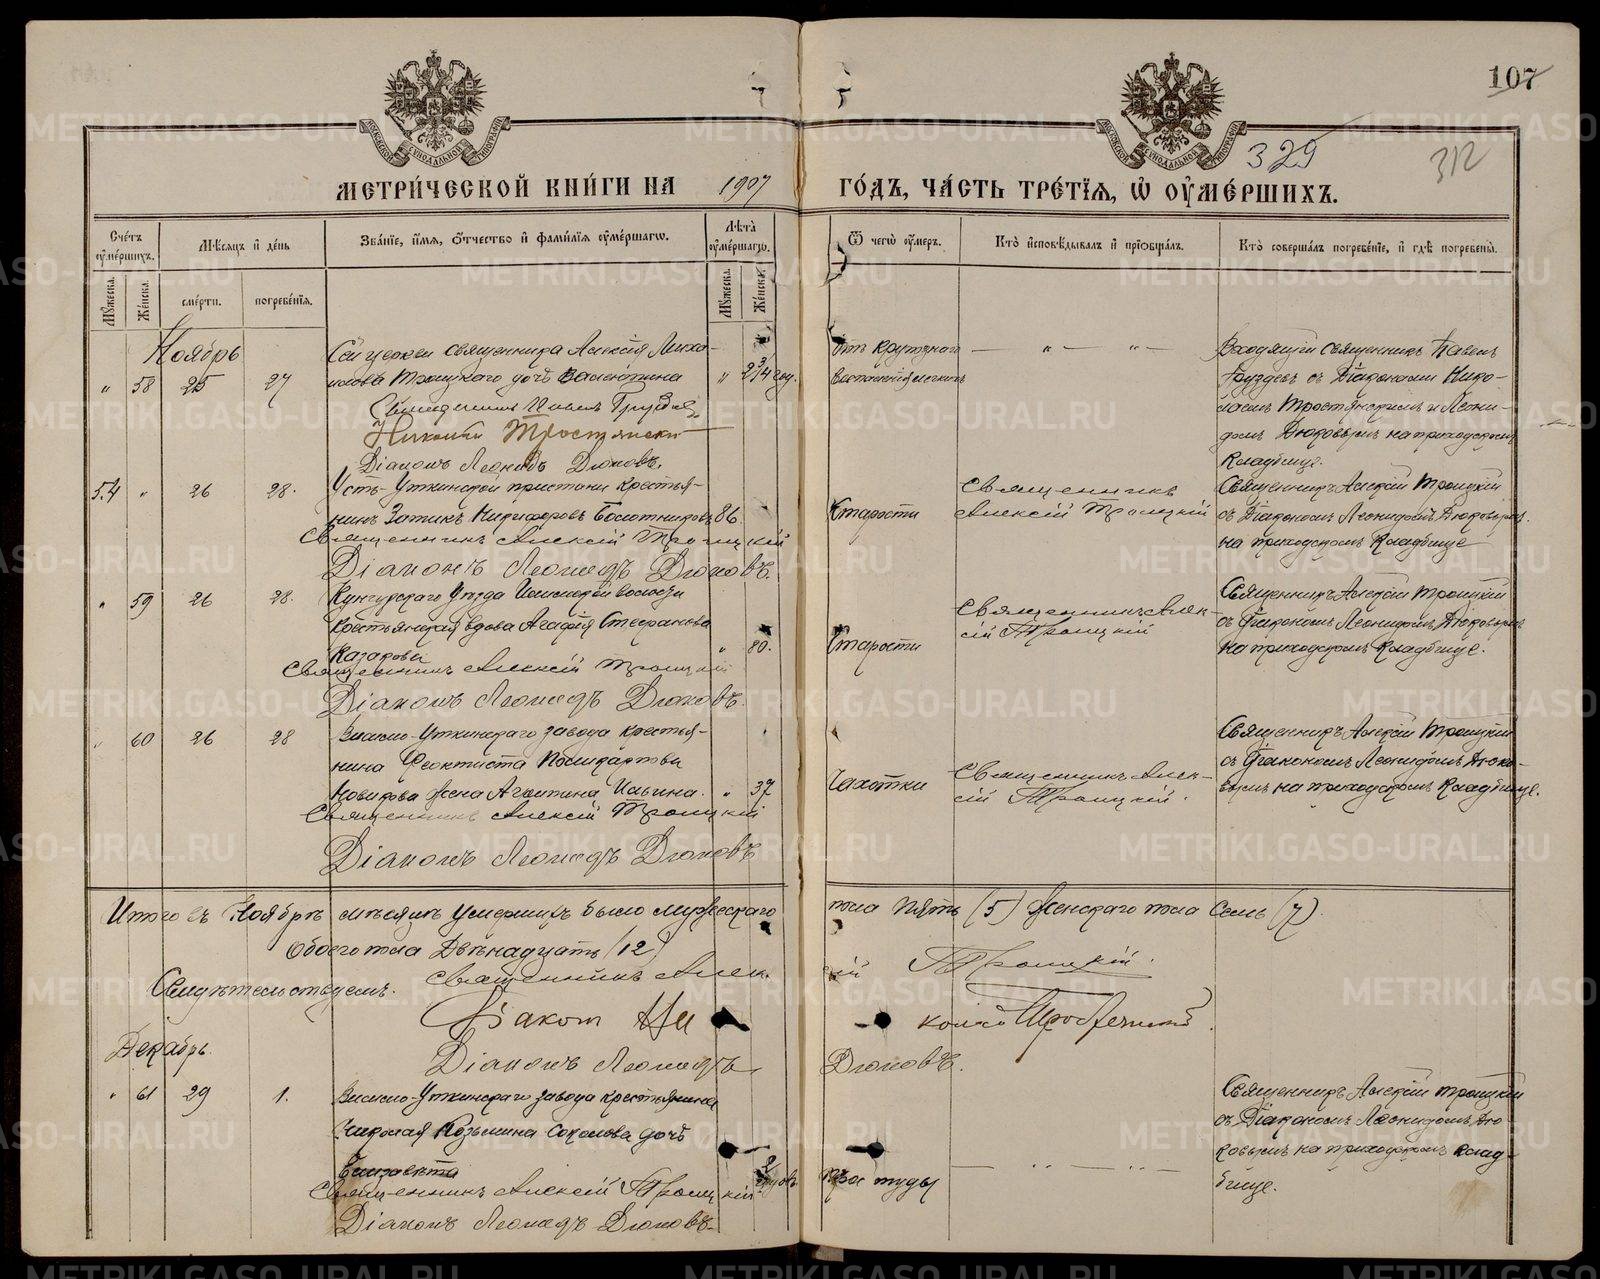 107
329
312
МЕТРИ́ЧЕСКОЙ КНИ́ГИ НА 1907 ГО́ДЪ, ЧА́СТЬ ТРЕ́ТІѦ, Ѡ ОУМЕ́РШИХЪ.
МОСКОВСКОЙ СѴНОДАЛЬНОЙ ТИПОГРАФІИ
МОСКОВСКОЙ СѴНОДАЛЬНОЙ ТИПОГРАФІИ
Сче́тъ оуме́ршихъ.
Мѣ́сяцъ и де́нь
Зва́ніе, и́мя, о́тчество и фами́лія оуме́ршагѡ.
Лѣта̀ оуме́ршагѡ.
Ѿ чегѡ̀ оу́меръ.
Кто̀ исповѣ́дывалъ и пріѡбща́лъ.
Кто̀ соверша́лъ погребе́ніе, и гдѣ̀ погребены̀.
Му́жеска.
Же́нска.
сме́рти.
погребе́нія.
Му́жеска.
Же́нска.
Ноябрь
Сей церкви священника Алексія Михаи-
" 58 25 27
лова Троцкаго дочь Валентина " 2 3/4 год.
Священникъ Павелъ Груздевъ
Николай Тростянскій
Діаконъ Леонидъ Дюковъ.
отъ крупознаго
воспаленія легкихъ
— " — " —
Входящій священникъ Павелъ
Груздевъ съ Діаконами Нико-
лаемъ Тростянскимъ и Леони-
домъ Дюковымъ на приходскомъ
кладбище.
54 " 26 28.
Усть-Уткинской пристани крестья-
нинъ Никифоровъ Болотниковъ 86.
Священникъ Алексій Троицкій
Діаконъ Леонидъ Дюковъ.
Старости
Священникъ
Алексій Троицкій
Священникъ Алексій Троицкій
съ Діакономъ Леонидомъ Дюковымъ
на приходскомъ кладбище
" 59 26 28.
Кунгурскаго уѣзда волости
крестьянская вдова Агафія Стефанова
Казакова " 80.
Священникъ Алексій Троицкій
Діаконъ Леонидъ Дюковъ.
Старости
Священникъ Алек-
сій Троицкій
Священникъ Алексій Троицкій
съ Діакономъ Леонидомъ Дюковымъ
на приходскомъ кладбище.
" 60 26 28
Висимо-Уткинскаго завода крестья-
нина Феоктиста Поликарпова
Новикова жена Ильина. " 37
Священникъ Алексій Троицкій
Діаконъ Леонидъ Дюковъ
Чахотки
Священникъ Алек-
сій Троицкій.
Священникъ Алексій Троицкій
съ Діакономъ Леонидомъ Дюко-
вымъ на приходскомъ кладбище.
Итого въ Ноябрѣ мѣсяцѣ умершихъ было мужескаго пола пять (5) женскаго пола семь (7).
Обоего пола двѣнадцать (12)
Священникъ Алексій Троицкій.
Свидѣтельствуемъ.
Діаконъ Николай Тростянскій
Діаконъ Леонидъ Дюковъ.
Декабрь.
" 61 29 1.
Висимо-Уткинскаго завода крестьянина
Николая Козьмина Соколова дочь
Елизавета
Священникъ Алексій Троицкій
Діаконъ Леонидъ Дюковъ.
Простуды
— " — " —
Священникъ Алексій Троицкій
съ Діакономъ Леонидомъ Дю-
ковымъ на приходскомъ клад-
бище.
METRIKI.GASO-URAL.RU